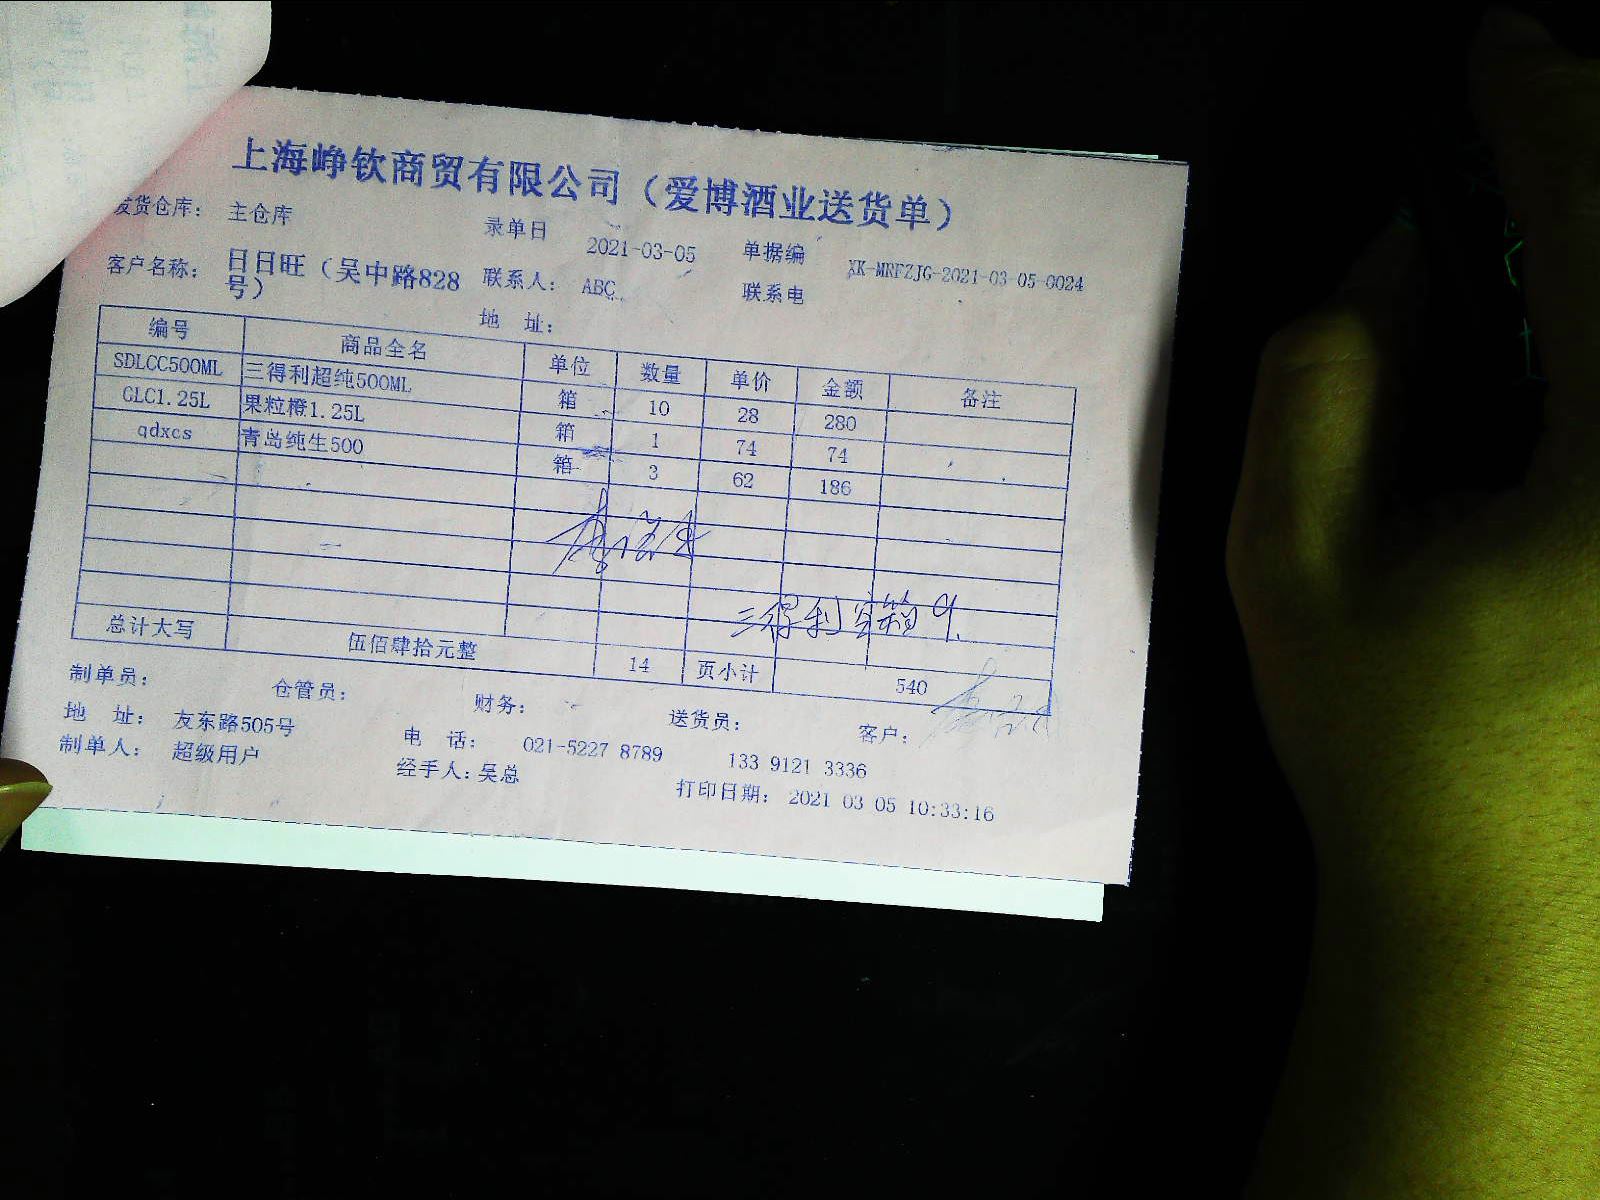 上海峥钦商贸有限公司（爱博酒业送货单）
发货仓库： 主仓库 录单日 2021-03-05 单据编 XK-MRFZJG-2021-03-05-0024
客户名称： 日日旺（吴中路828号） 联系人： ABC 联系电
地 址：
编号 商品全名 单位 数量 单价 金额 备注
SDLCC500ML 三得利超纯500ML 箱 10 28 280
GLC1.25L 果粒橙1.25L 箱 1 74 74
qdxcs 青岛纯生500 箱 3 62 186
三得利空箱 9.
总计大写 伍佰肆拾元整 14 页小计 540
制单员： 仓管员： 财务： 送货员： 客户：
地 址： 友东路505号 电 话： 021-5227 8789 133 9121 3336
制单人： 超级用户 经手人：吴总 打印日期： 2021 03 05 10:33:16